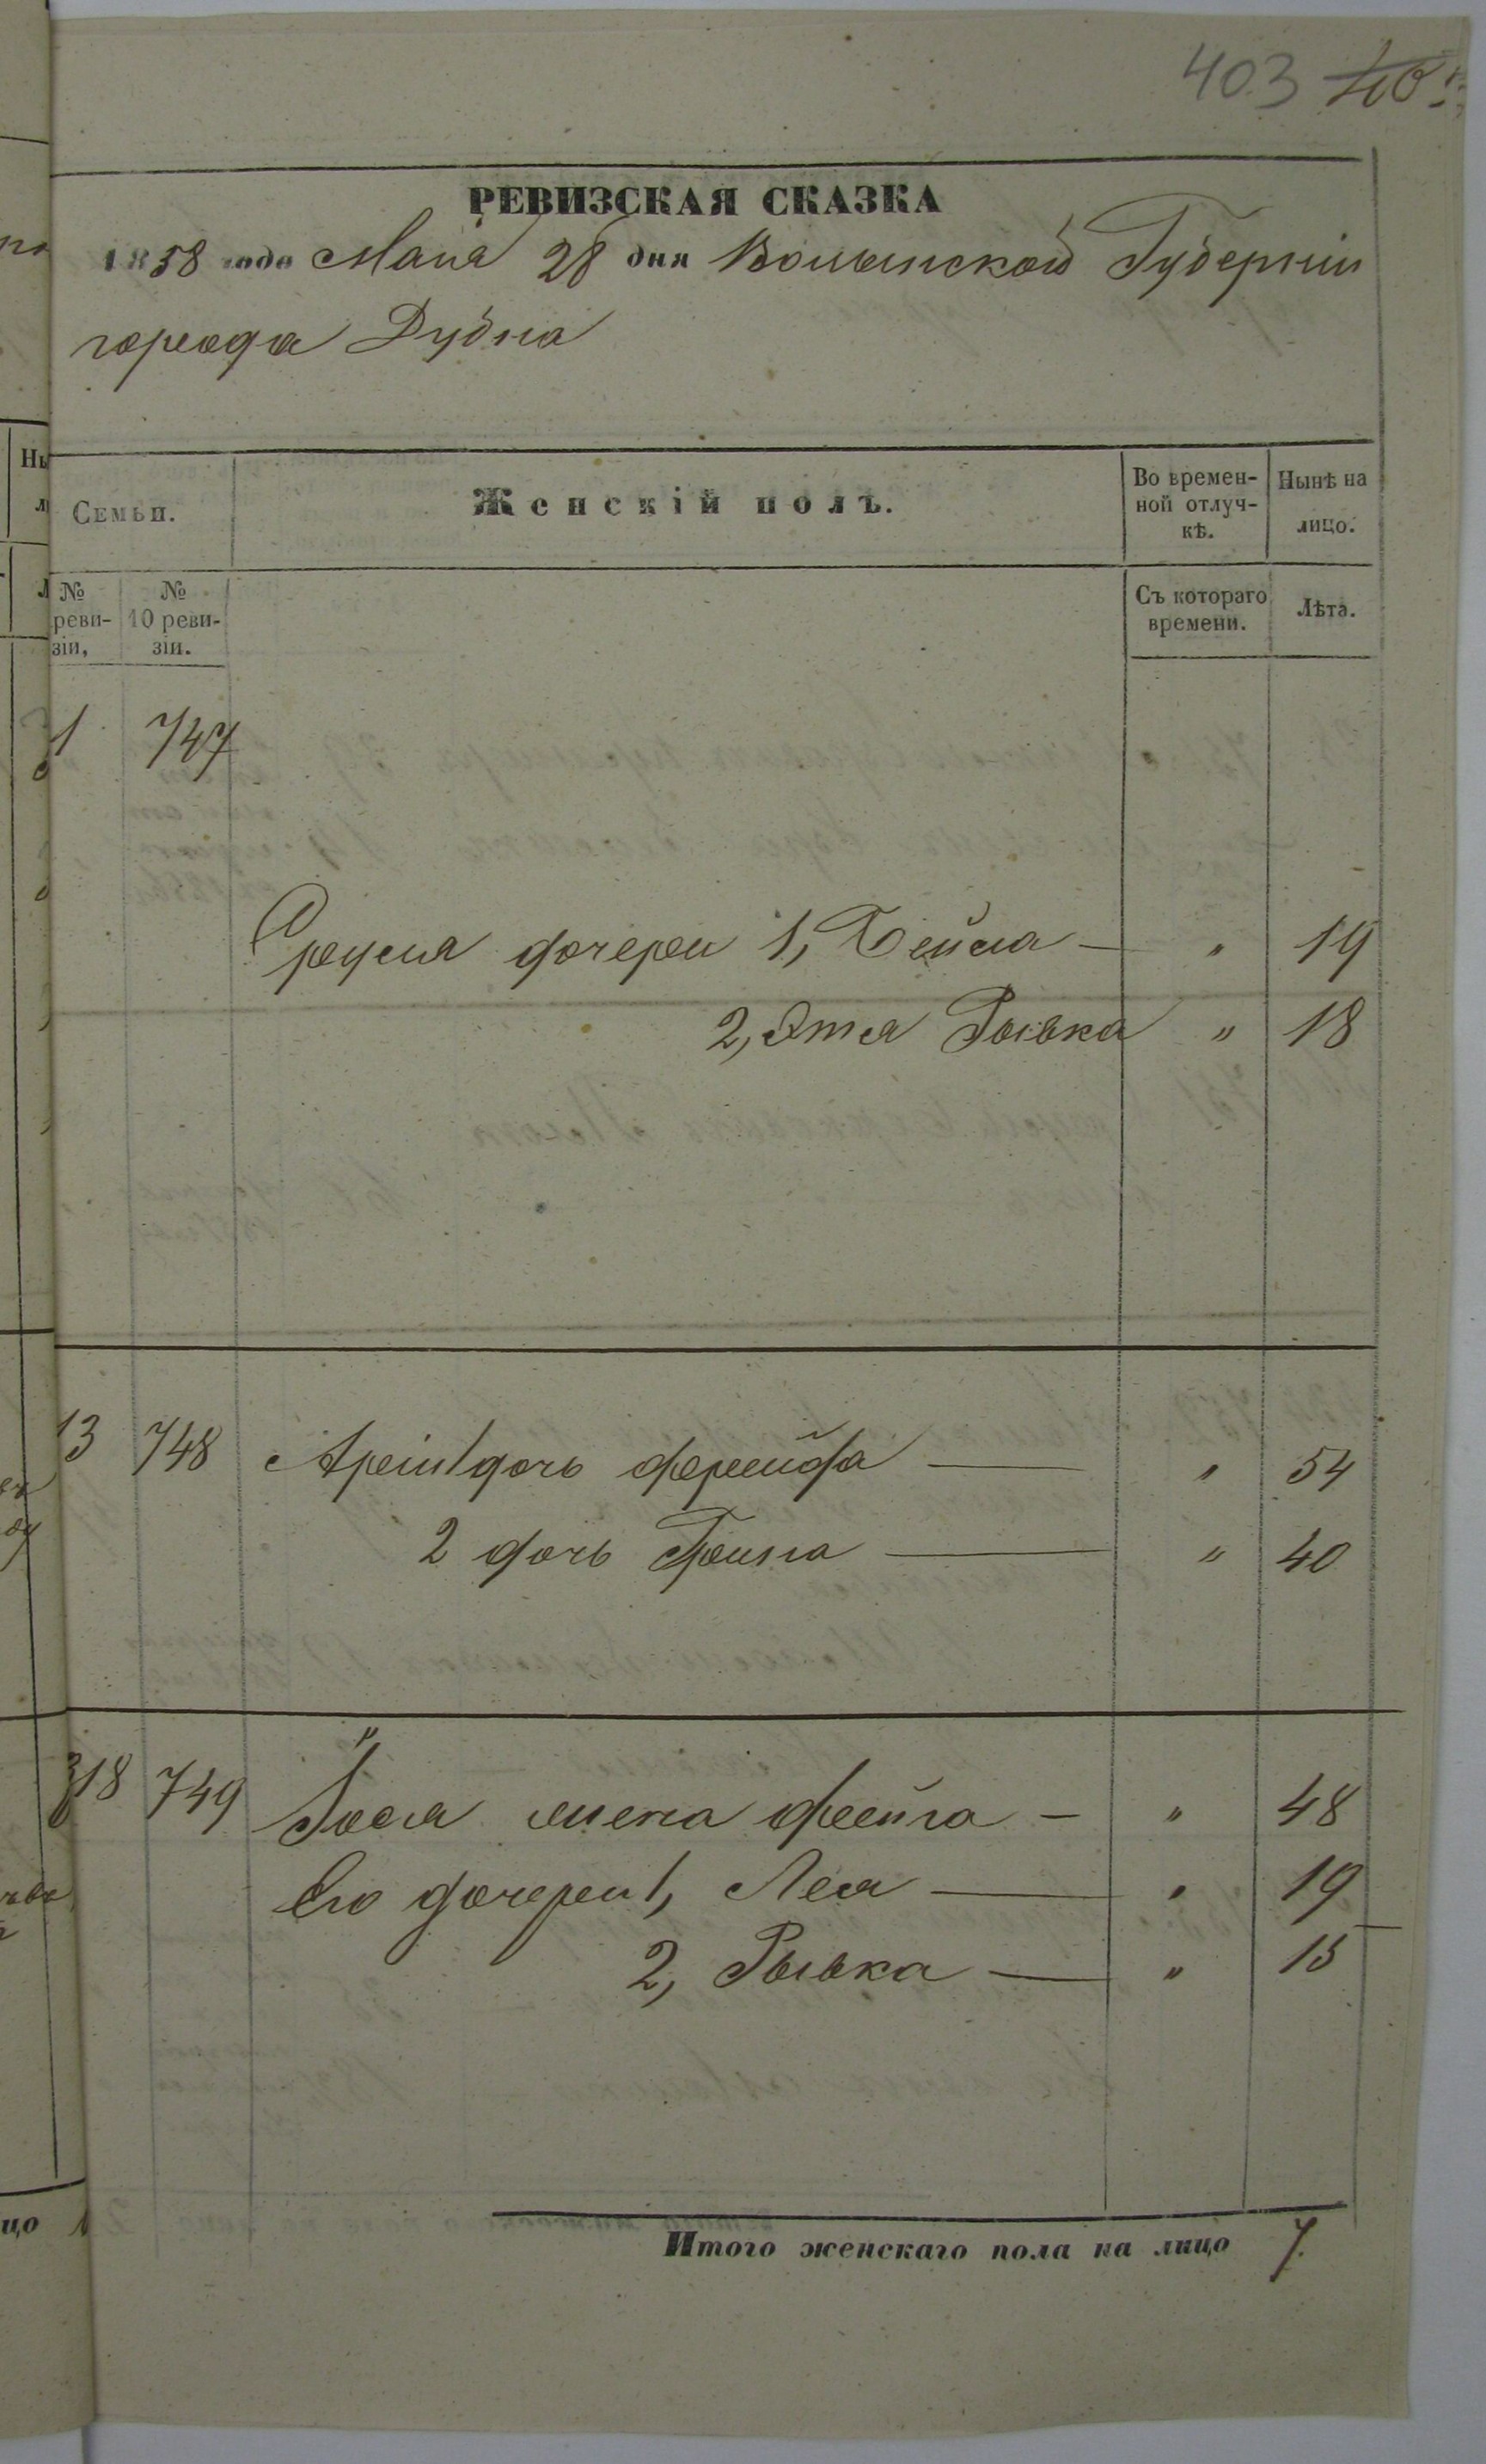 403
РЕВИЗСКАЯ СКАЗКА
1858 года Мая 28 дня Волынской Губерніи
города Дубна
Семьи.
Женскій полъ.
Во времен-
ной отлуч-
кѣ.
Нынѣ на
лицо.
№
реви-
зіи,
№
10 реви-
зіи.
Съ котораго
времени.
Лѣта.
1 747
дочери 1, Бейла — " 19
2, Рывка " 18
13 748 дочь — " 54
2 дочь — " 40
318 749 жена Фейга — " 48
Его дочери 1, Лея — " 19
2, Рывка — " 15
Итого женскаго пола на лицо 7.